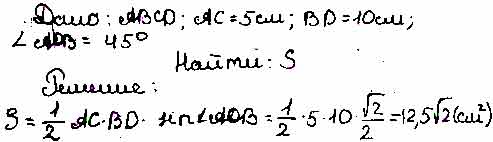 Дано: ABCD; AC = 5 см; BD = 10 см;
∠ AOB = 45°
Найти: S
Решение:
S = 1/2 AC · BD · sin∠AOB = 1/2 · 5 · 10 · √2/2 = 12,5√2 (см²)